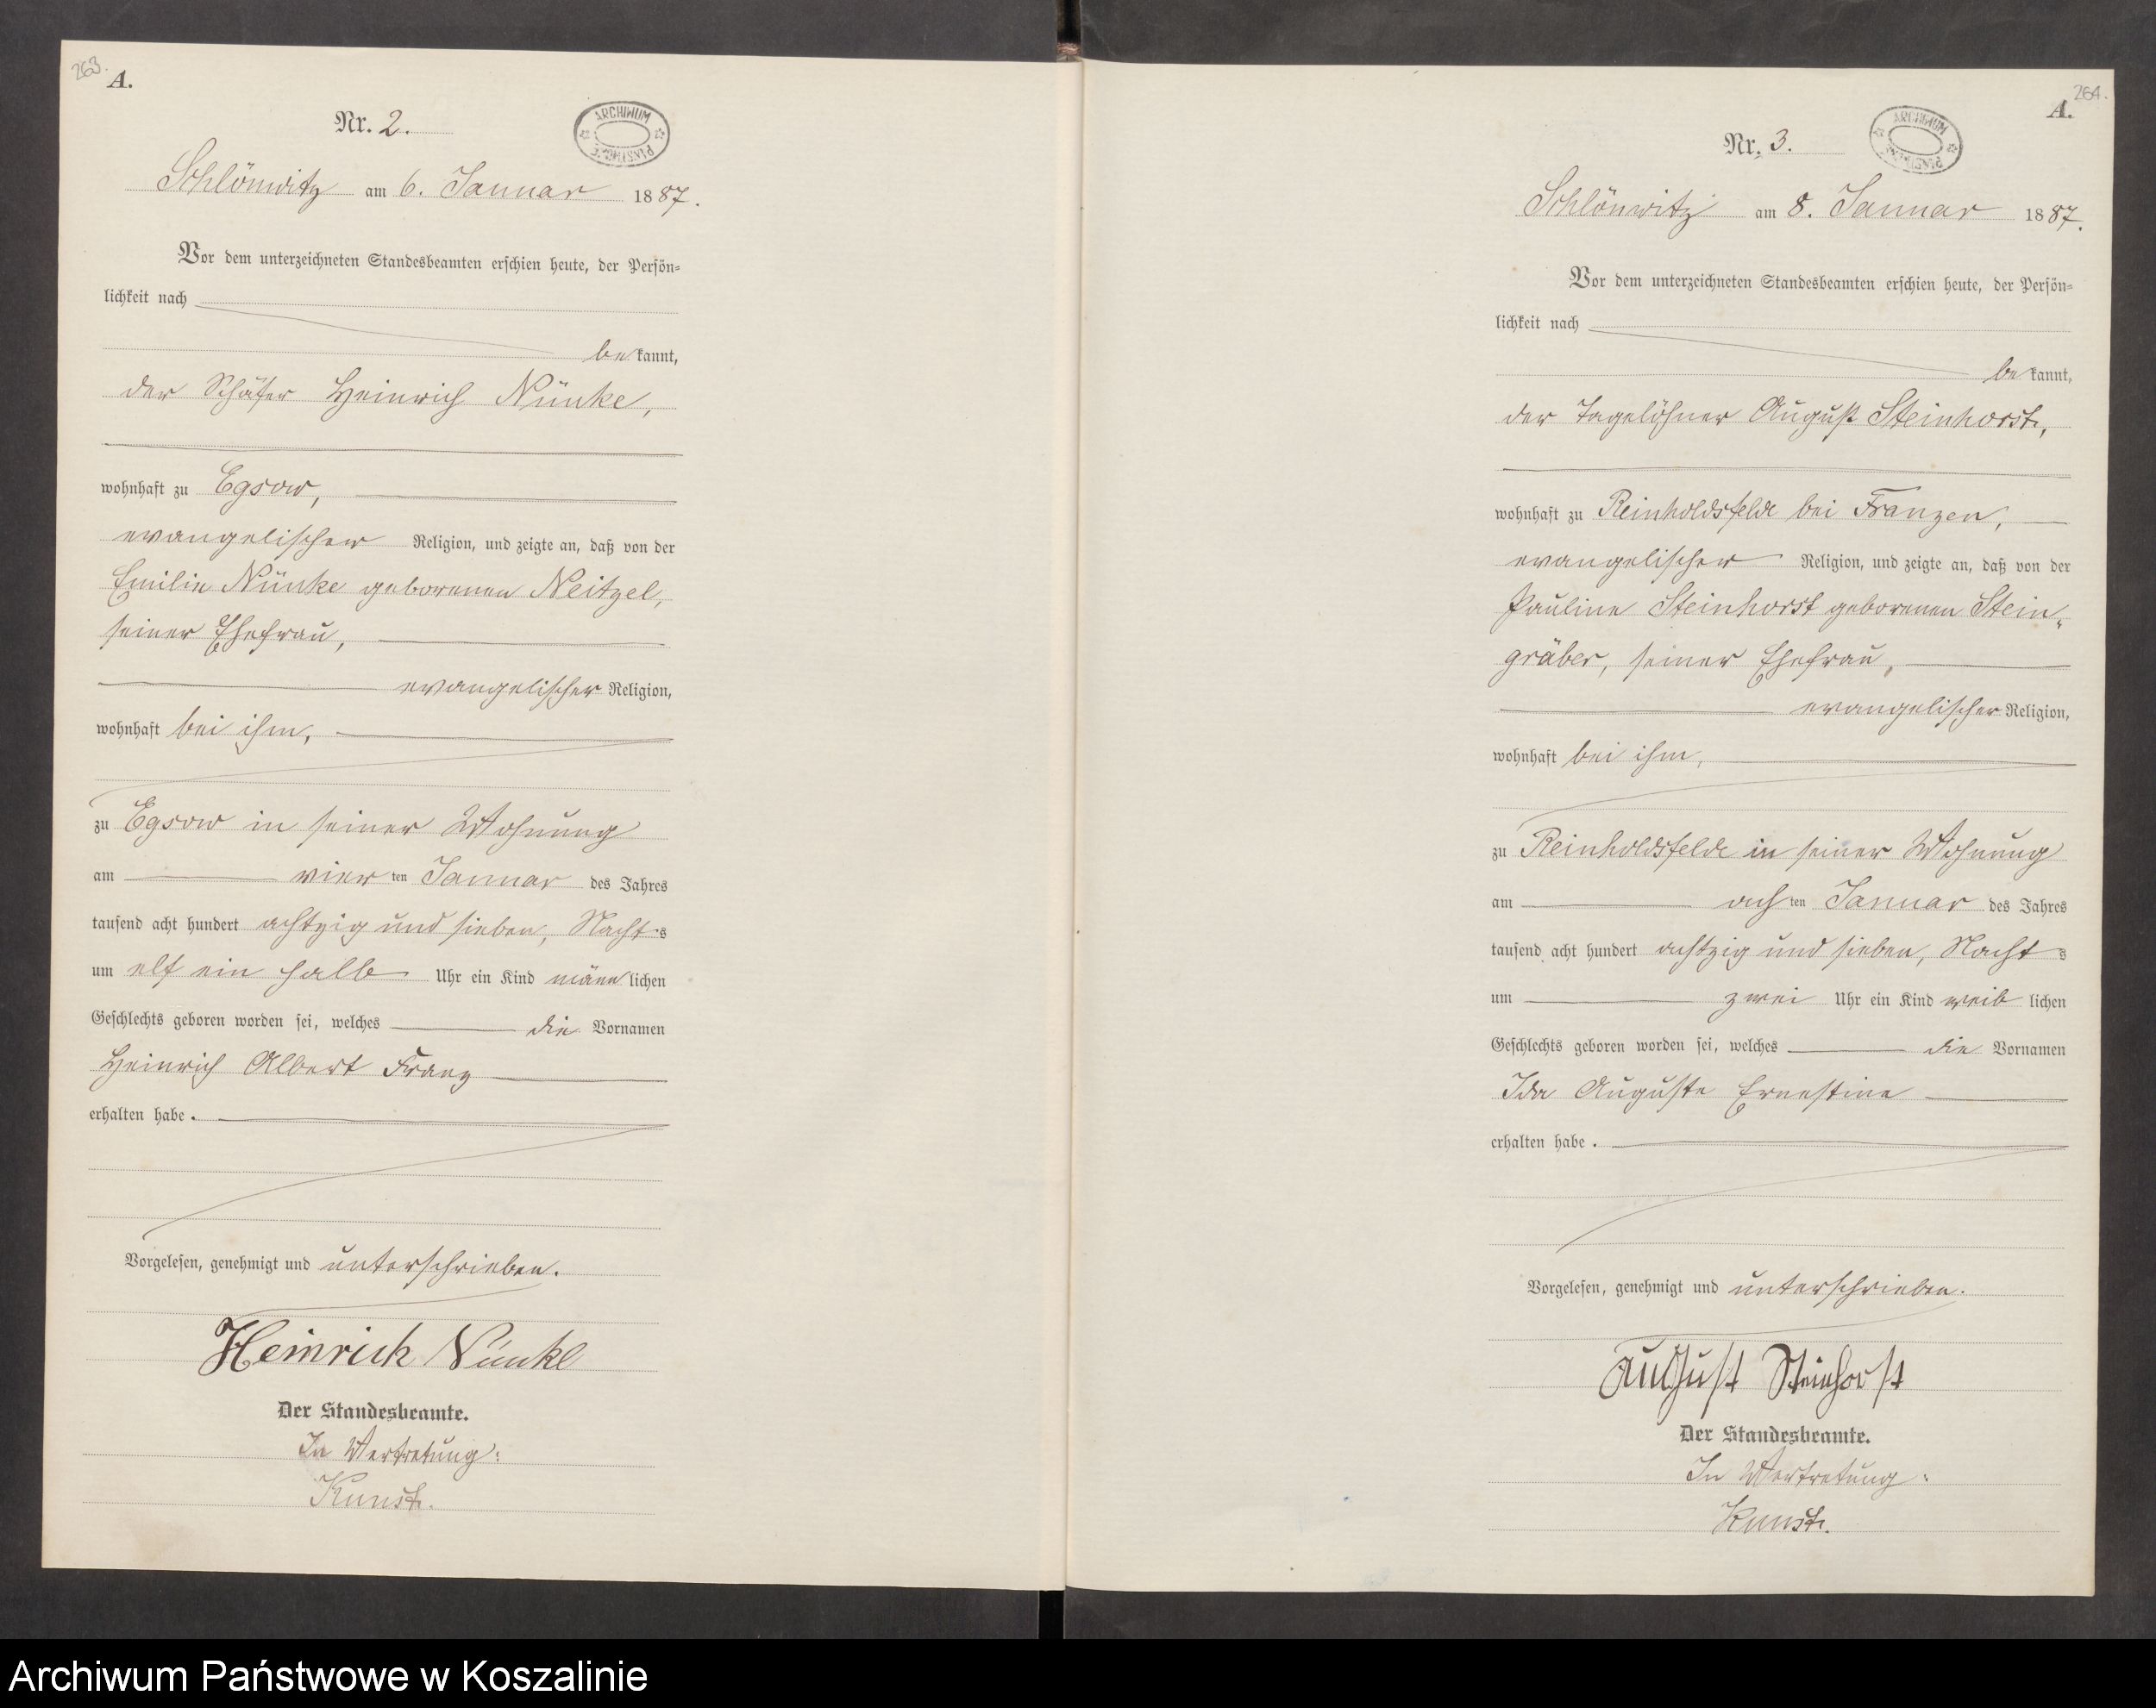 263.
A.
Nr. 2.
ARCHIWUM PAŃSTWOWE
Schlönwitz am 6. Januar 1887.
Vor dem unterzeichneten Standesbeamten erschien heute, der Persön-
lichkeit nach
bekannt,
der Schäfer Heinrich Nünke,
wohnhaft zu Egsow,
evangelischer Religion, und zeigte an, daß von der
Emilie Nünke geborenen Neitzel,
seiner Ehefrau,
evangelischer Religion,
wohnhaft bei ihm,
zu Egsow in seiner Wohnung
am vierten Januar des Jahres
tausend acht hundert achtzig und sieben, Nachts
um elf ein halb Uhr ein Kind männlichen
Geschlechts geboren worden sei, welches die Vornamen
Heinrich Albert Franz
erhalten habe.
Vorgelesen, genehmigt und unterschrieben.
Heinrich Nünke
Der Standesbeamte.
In Vertretung:
Kunst.
264.
A.
Nr. 3.
ARCHIWUM PAŃSTWOWE
Schlönwitz am 8. Januar 1887.
Vor dem unterzeichneten Standesbeamten erschien heute, der Persön-
lichkeit nach
bekannt,
der Tagelöhner August Steinhorst,
wohnhaft zu Reinholdsfelde bei Franzen,
evangelischer Religion, und zeigte an, daß von der
Pauline Steinhorst geborenen Stein-
gräber, seiner Ehefrau,
evangelischer Religion,
wohnhaft bei ihm,
zu Reinholdsfelde in seiner Wohnung
am achten Januar des Jahres
tausend acht hundert achtzig und sieben, Nachts
um zwei Uhr ein Kind weiblichen
Geschlechts geboren worden sei, welches die Vornamen
Ida Auguste Ernestine
erhalten habe.
Vorgelesen, genehmigt und unterschrieben.
August Steinhorst
Der Standesbeamte.
In Vertretung:
Kunst.
Archiwum Państwowe w Koszalinie